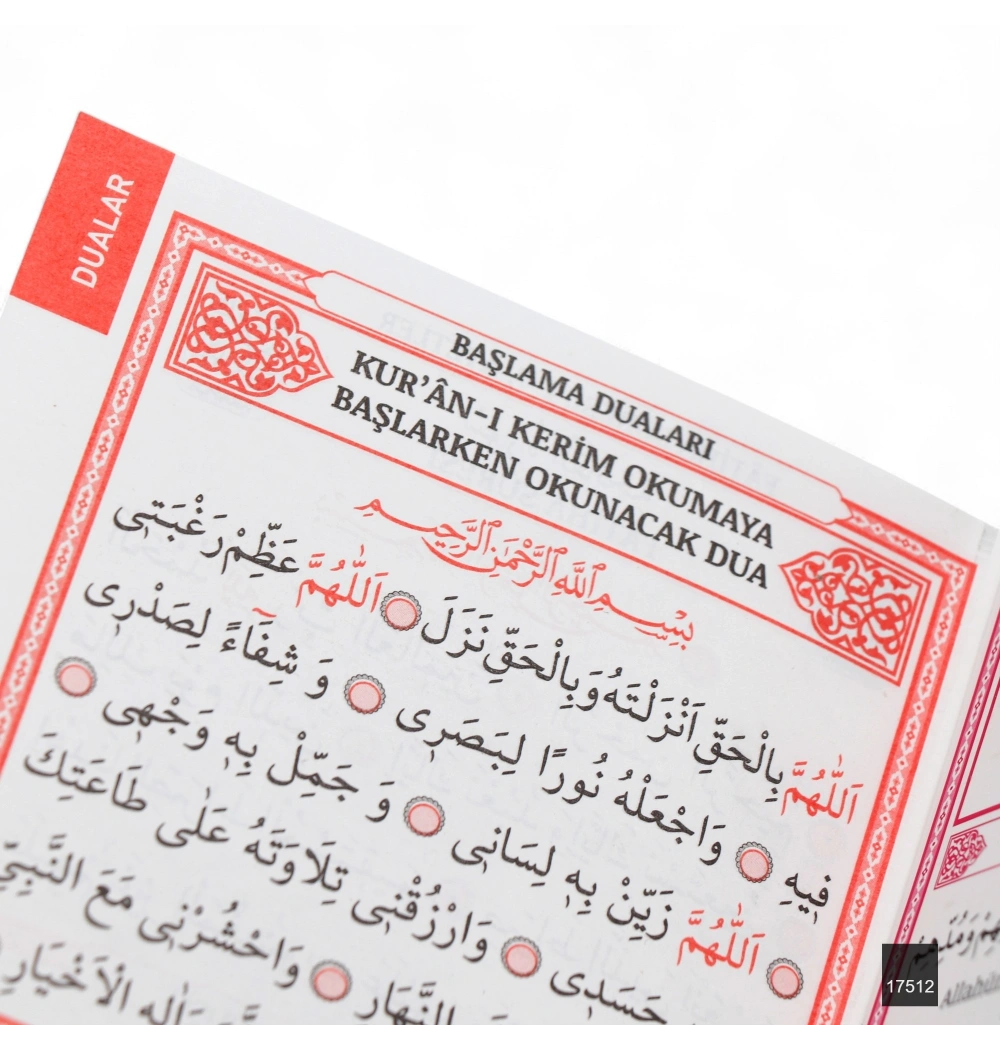 DUALAR
BAŞLAMA DUALARI
KUR’ÂN-I KERİM OKUMAYA
BAŞLARKEN OKUNACAK DUA
بِسْمِ اللَّهِ الرَّحْمَنِ الرَّحِيمِ
اَللّٰهُمَّ بِالْحَقِّ اَنْزَلْتَهُ وَبِالْحَقِّ نَزَلَ اَللّٰهُمَّ عَظِّمْ رَغْبَتٖى
فٖيهِ وَاجْعَلْهُ نُورًا لِبَصَرٖى وَ شِفَٓاءً لِصَدْرٖى
اَللّٰهُمَّ زَيِّنْ بِهٖ لِسَانٖى وَ جَمِّلْ بِهٖ وَجْهٖى
حَسَدٖى وَارْزُقْنٖى تِلَاوَتَهُ عَلٰى طَاعَتِكَ
النَّهَارِ وَاحْشُرْنٖى مَعَ النَّبِىِّ
وَاٰلِهِ الْاَخْيَارِ
17512